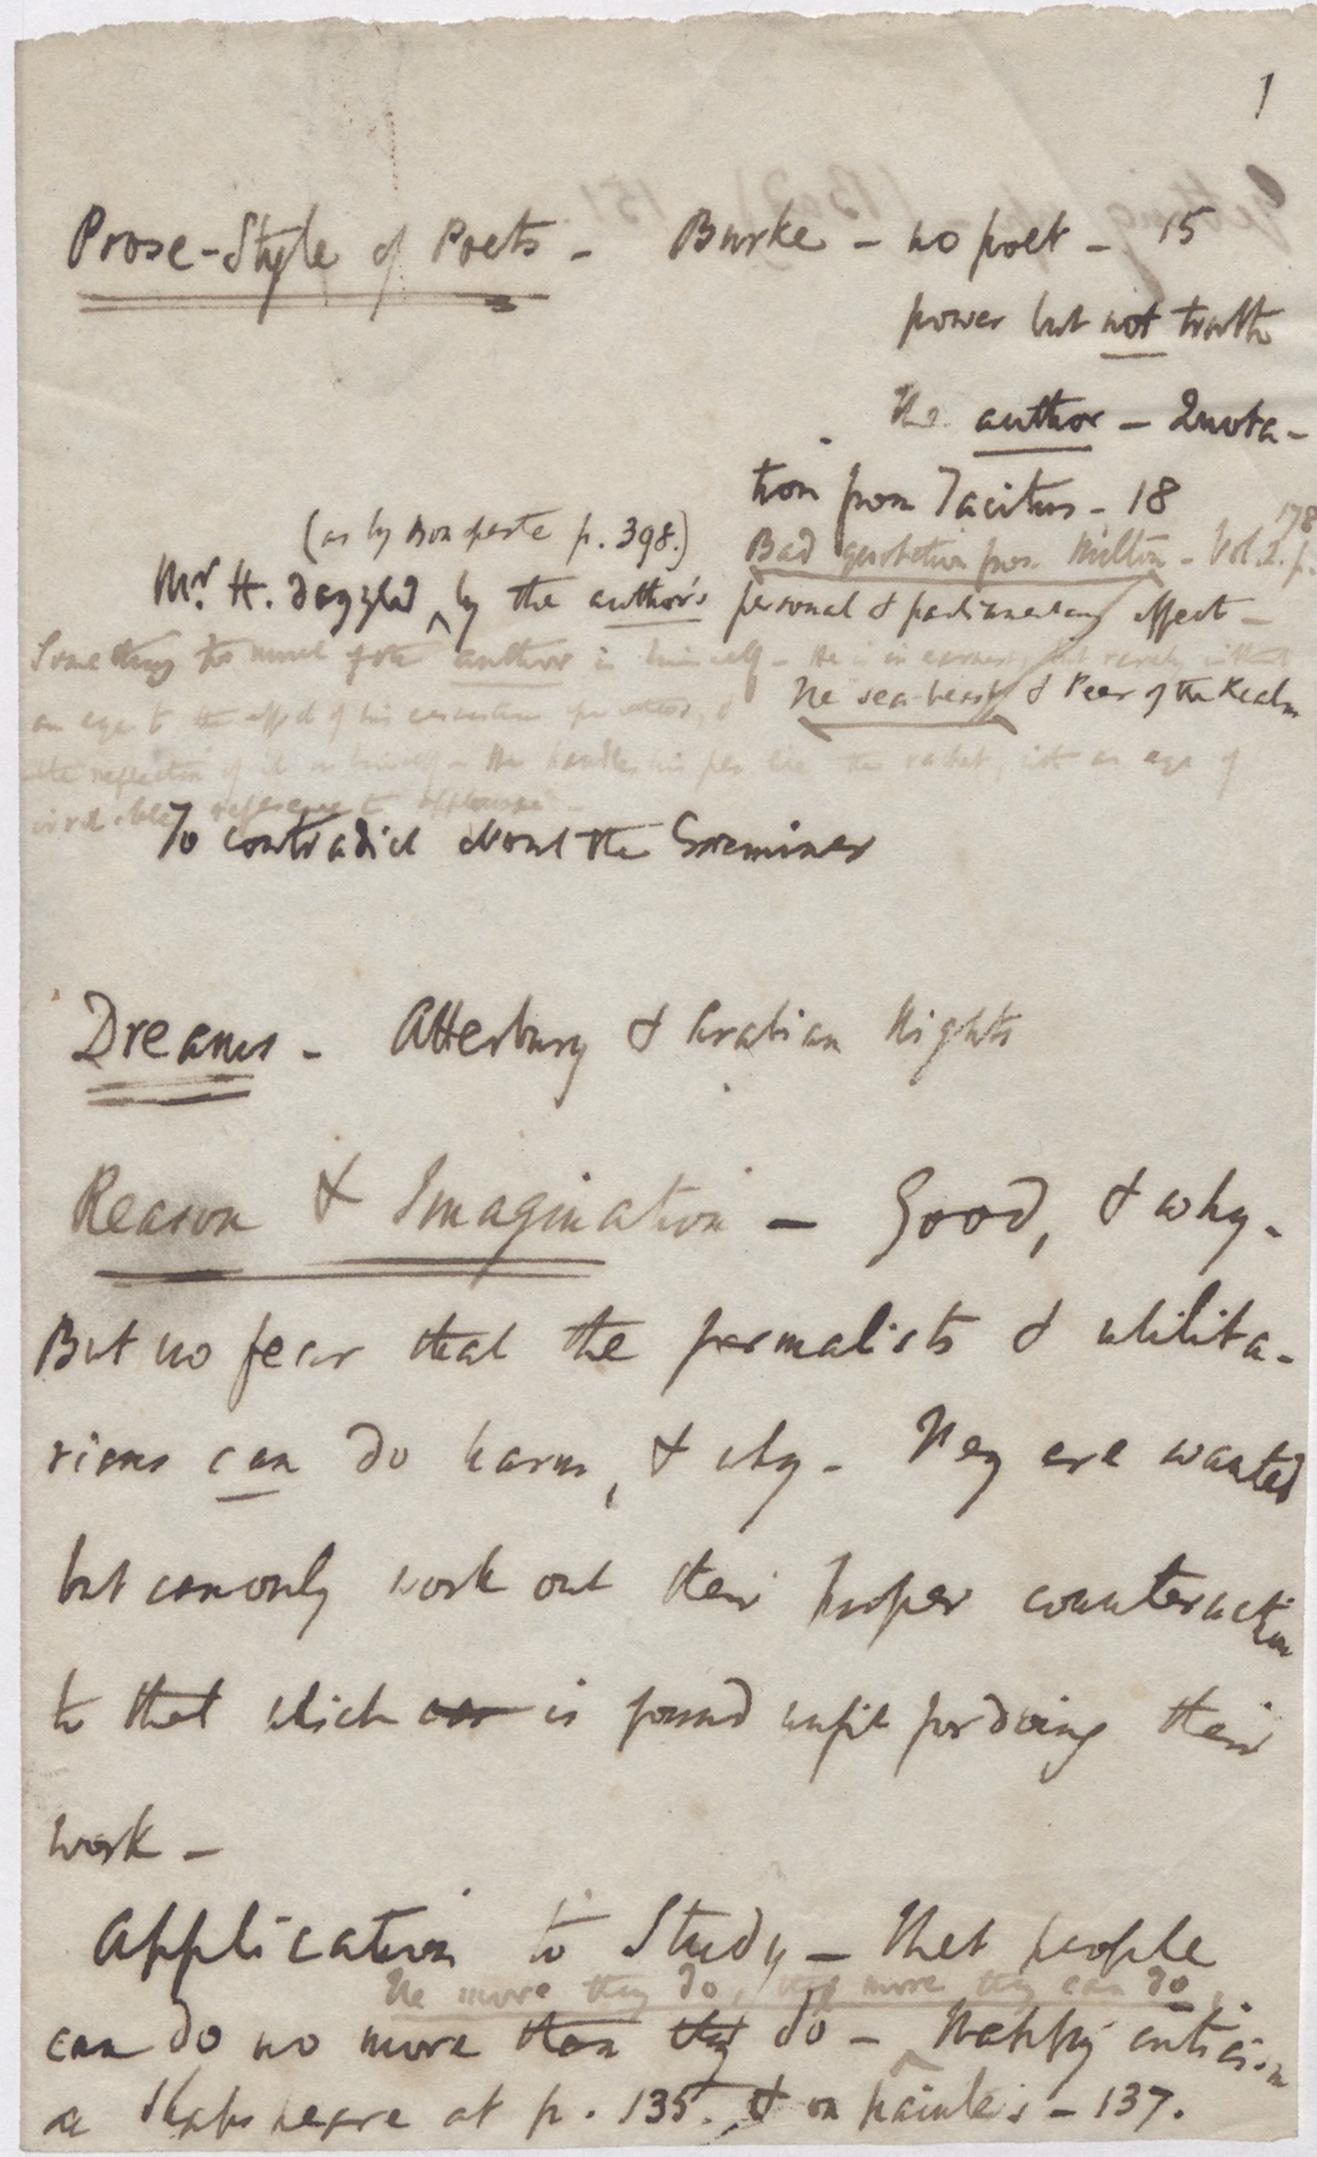 1
Prose-Style of Poets - Burke - no poet - 15
power but not truth
The author - Quota-
tion from Tacitus - 18
(as by Bonaparte p. 398.)
Bad quotation from Milton - Vol. 2. p. 178
Mr. H. dazzled by the author's personal & parliamentary effect -
Something too much of the author in himself - He is in earnest, but rarely without
an eye to the effect of his
The sea-beast & Peer of the Realm
the reflection of it on himself - He handles his pen like the racket, with an eye of
reference to applause -
To contradict about the Examiner
Dreams - Atterbury & Arabian Nights
Reason & Imagination - Good, & why.
But no fear that the formalists & utilita-
rians can do harm, & why - They are wanted
but can only work out their proper counteraction
to that which is found unfit for doing their
work -
Application to Study - That people
The more they do, the more they can do.
can do no more than they do - Happy criticism
Shakspeare at p. 135. & on painters - 137.